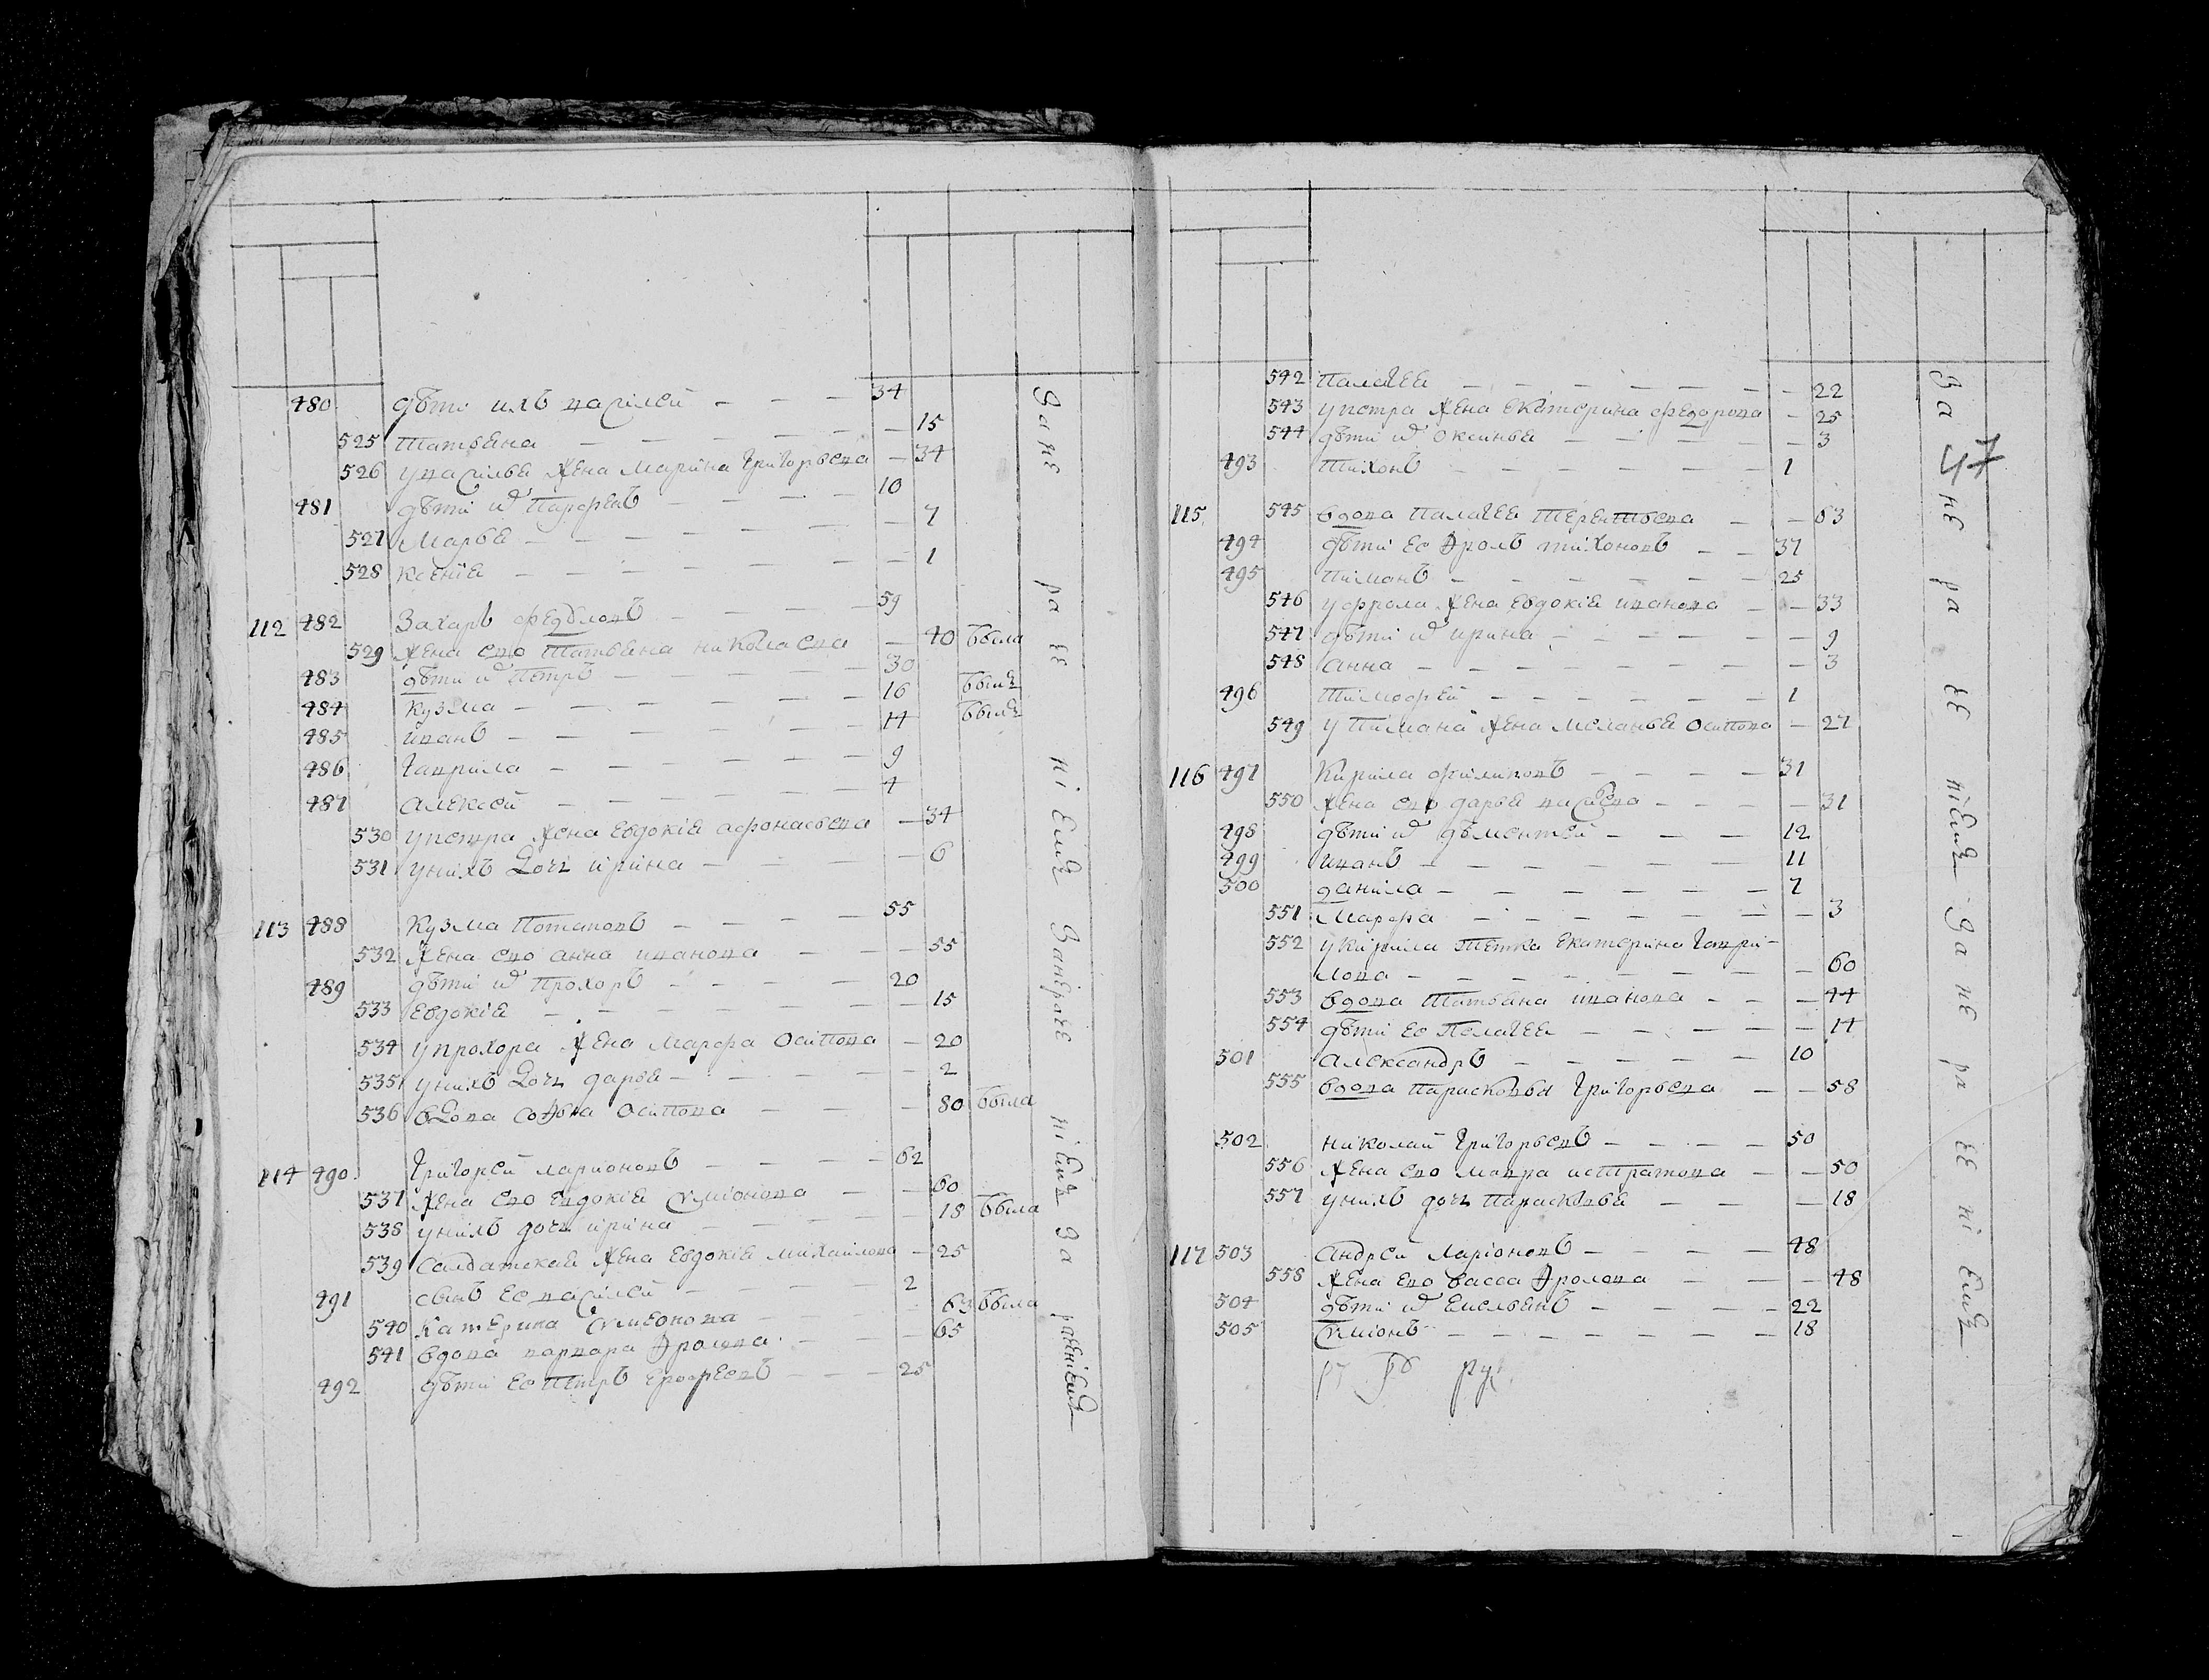 480 дѣти ихъ василей — — — 34
— 15
525 татьяна — — — — —
526 у василья жена марина григорьева — 34
481 дѣти их парфенъ — — — — 10
— 7
527 марья — — — — —
528 ксенiя — — — — — — 1
112 482 Захаръ федоловъ — — — 59
529 жена ево татьяна николаева — 40 была
483 дѣти их петръ — — — — 30
484 кузма — — — — — — 16 былъ
485 иванъ — — — — — — 14 былъ
486 гаврила — — — — — — 9
487 алексей — — — — — — 4
530 у петра жена евдокiя афонасьева — 34
531 у нихъ дочь ирина — — — — 6
113 488 Кузма потаповъ — — — — 55
532 жена ево анна иванова — — — 55
489 дѣти их прохоръ — — — — 20
533 евдокiя — — — — — — 15
534 у прохора жена марфа осипова — 20
535 у нихъ дочь дарья — — — — 2
536 вдова софья осипова — — — 80 была
114 490 григорей ларионовъ — — — — 62
537 жена ево евдокiя симiонова — — 60
538 у нихъ дочь ирина — — — — 18 была
539 салдатская жена евдокiя михаилова — 25
491 сынъ ее василей — — — — 2
540 катерина симеонова — — 63 была
541 вдова варвара фролова — — — 65
492 дѣти ее петръ ерофеевъ — — — 25
За не ра че нi емъ За нерачe нiемъ За раченiемъ
47
542 палагея — — — — — — — 22
543 у петра жена екатерина федорова — 25
544 дѣти их оксинья — — — — — 3
493 тихонъ — — — — — — 1
115 545 вдова палагея терентьева — — 63
494 дѣти ее фролъ тихоновъ — — 37
495 пиманъ — — — — — — 25
546 у фрола жена евдокiя иванова — — 33
547 дѣти их ирина — — — — — — 9
548 анна — — — — — — — 3
496 тимофей — — — — — — 1
549 у пимана жена меланья осипова — 27
116 497 Кирила филиповъ — — — — 31
550 жена ево дарья васильева — — — — 31
498 дѣти их дѣментей — — — 12
499 иванъ — — — — — — 11
500 данила — — — — — — 7
551 марфа — — — — — — — 3
552 у кирила тетка екатерина гаври-
лова — — — — — — — — 60
553 вдова татьяна иванова — — — 44
554 дѣти ее пелагея — — — — — 14
501 александръ — — — — — 10
555 вдова парасковья григорьева — — 58
502 николай григорьевъ — — — — 50
556 жена ево мавра истратова — — 50
557 у нихъ дочь парасковья — — — 18
117 503 андрей ларiоновъ — — — — 48
558 жена ево васса фролова — — — 48
504 дѣти их емельянъ — — — — 22
505 симiонъ — — — — — — — 18
За не ра че нiемъ За не ра че нi емъ